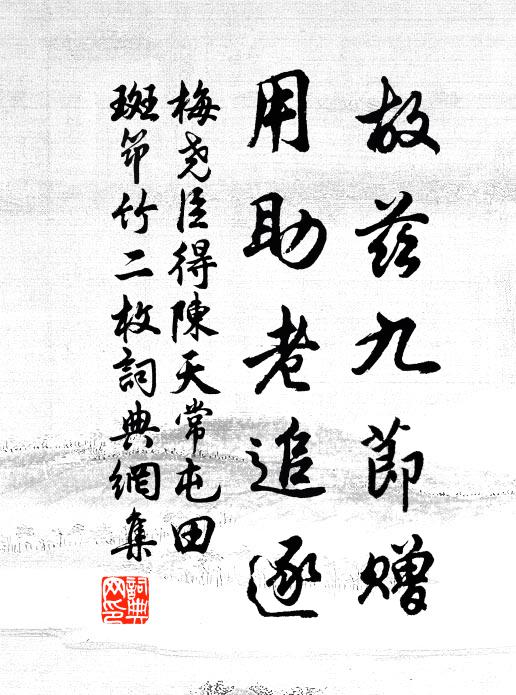 故茲九節贈
用助老追逐
梅尧臣得陳天常屯田
斑笻竹二枚詞典網集
詞典网印